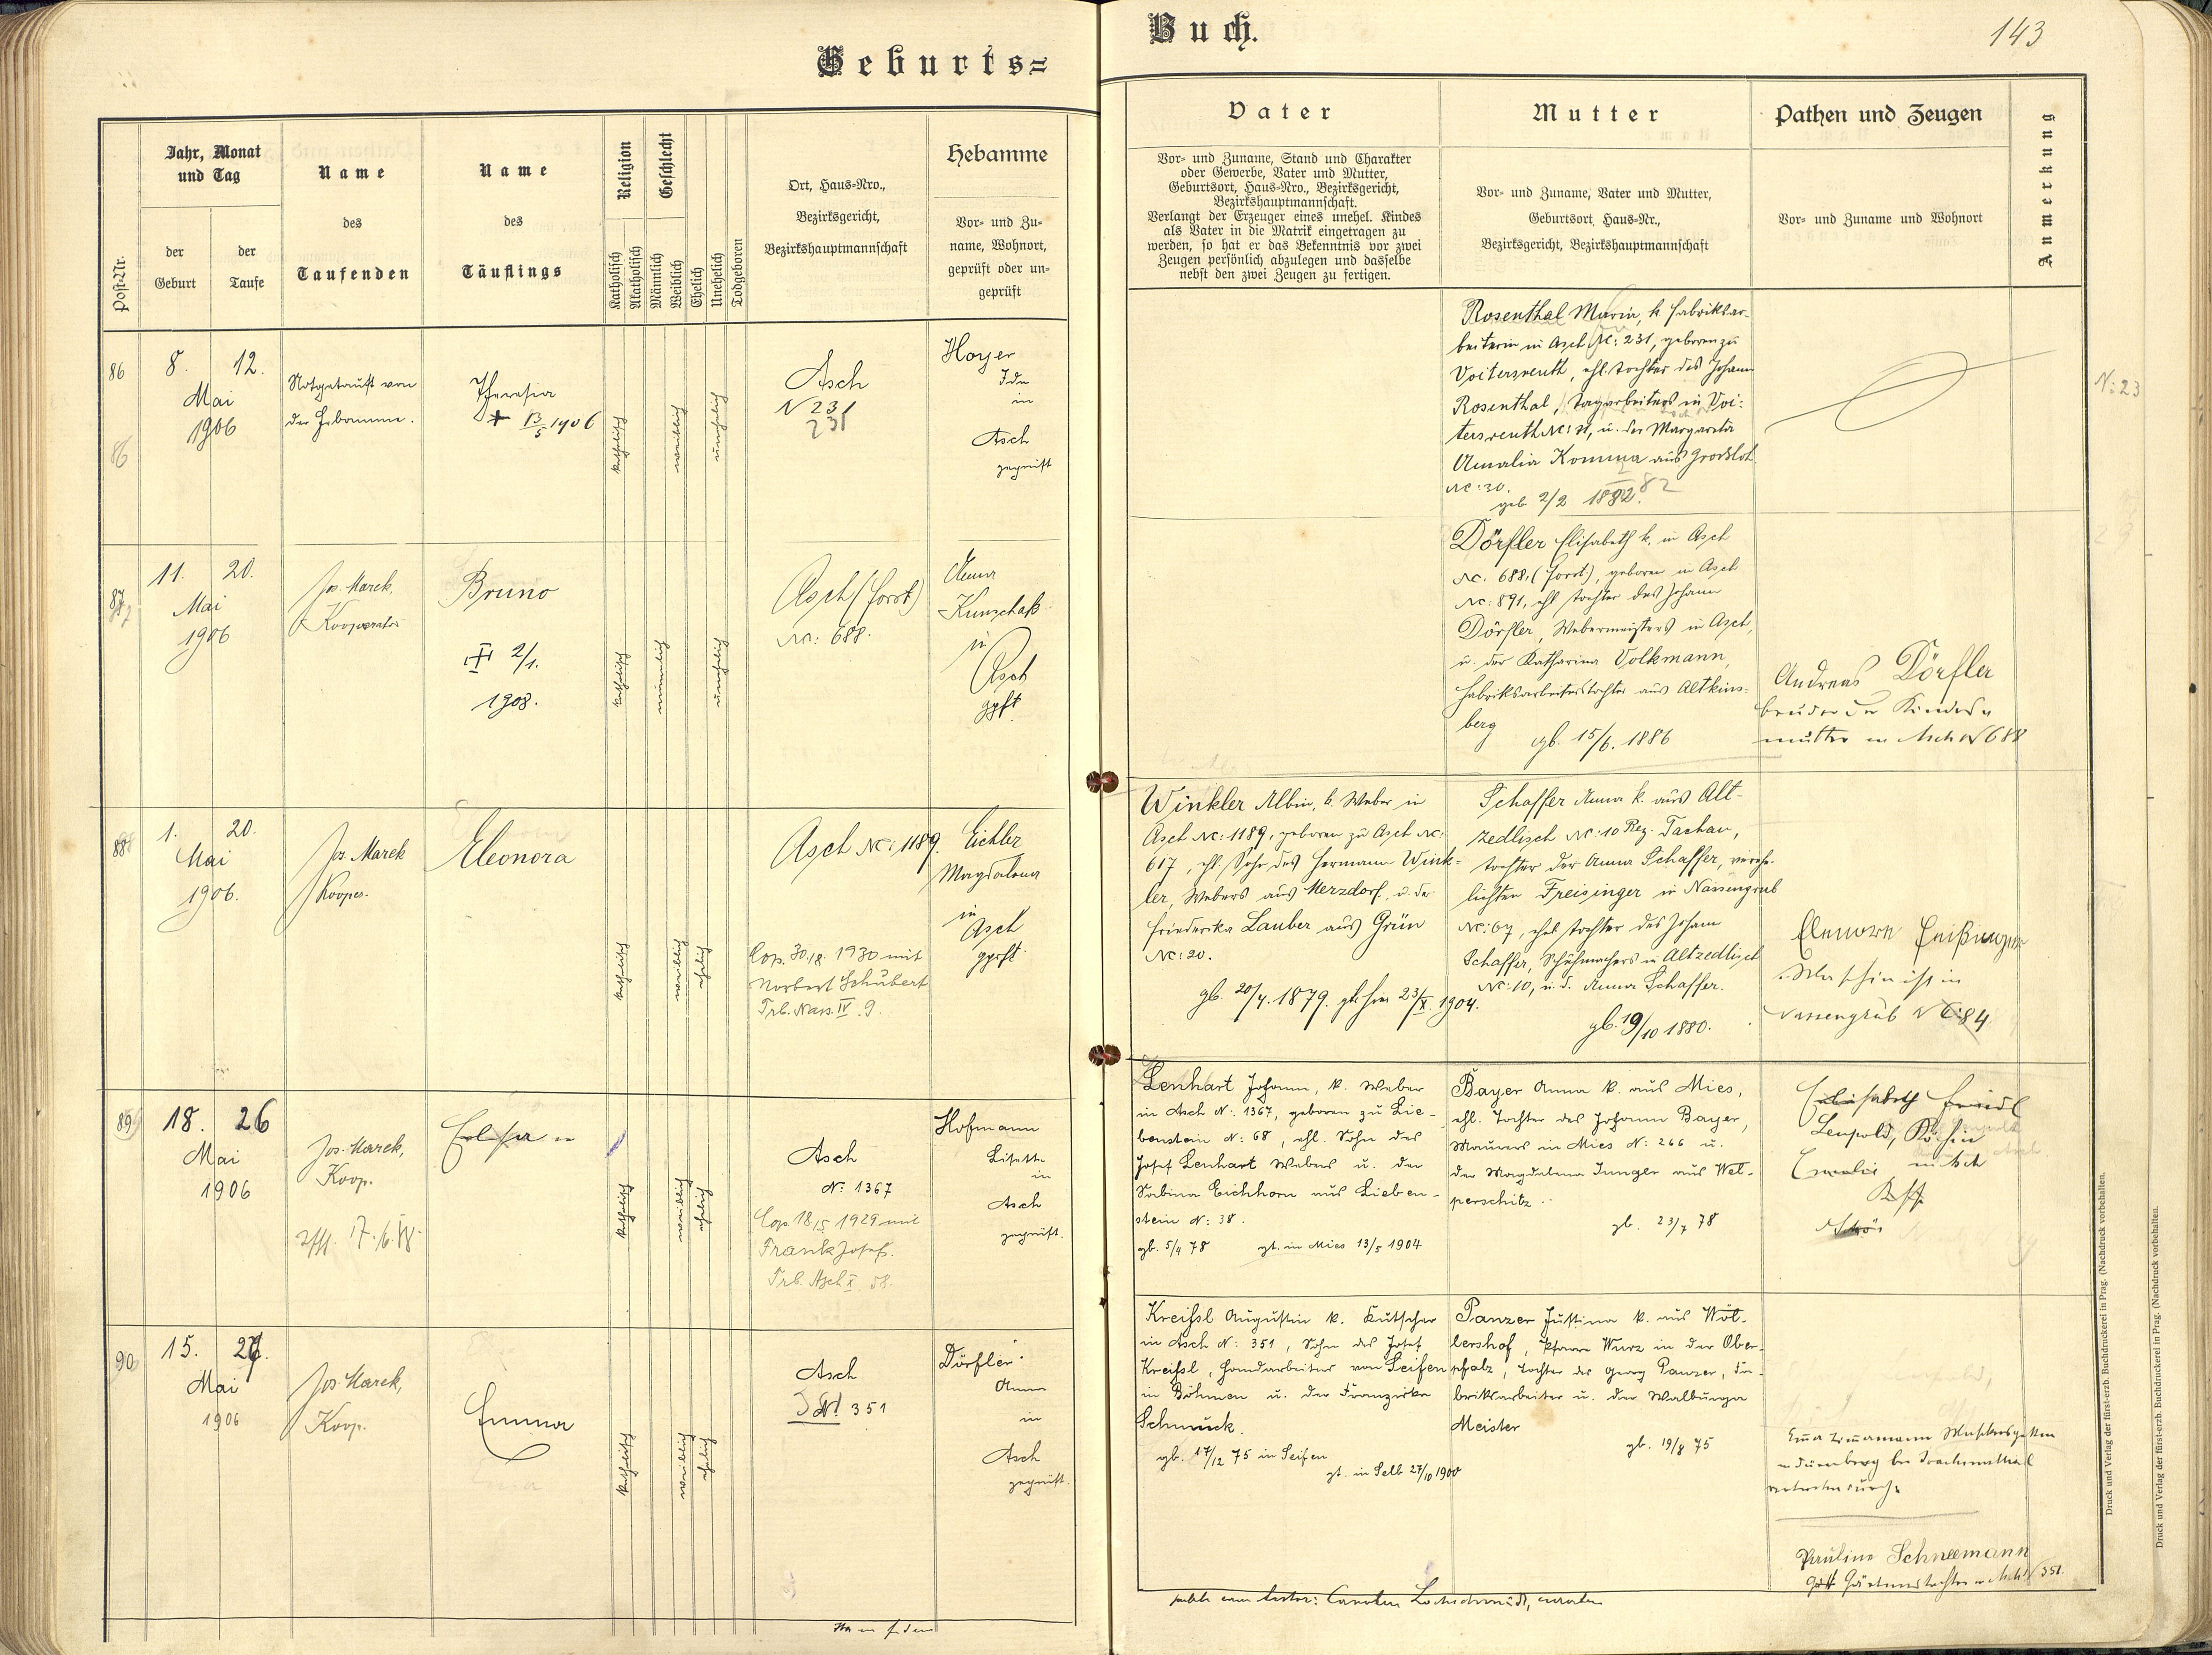 Geburts=
Buch.
143
Post-Nr.
Jahr, Monat
und Tag
der
Geburt
der
Taufe
Name
des
Taufenden
Name
des
Täuflings
Religion
Katholisch
Akatholisch
Geschlecht
Männlich
Weiblich
Ehelich
Unehelich
Todgeboren
Ort, Haus=Nro.,
Bezirksgericht,
Bezirkshauptmannschaft
Hebamme
Vor= und Zu=
name, Wohnort,
geprüft oder un=
geprüft
Vater
Vor= und Zuname, Stand und Charakter
oder Gewerbe, Vater und Mutter,
Geburtsort, Haus=Nro., Bezirksgericht,
Bezirkshauptmannschaft.
Verlangt der Erzeuger eines unehel. Kindes
als Vater in die Matrik eingetragen zu
werden, so hat er das Bekenntnis vor zwei
Zeugen persönlich abzulegen und dasselbe
nebst den zwei Zeugen zu fertigen.
Mutter
Vor= und Zuname, Vater und Mutter,
Geburtsort, Haus=Nr.,
Bezirksgericht, Bezirkshauptmannschaft
Pathen und Zeugen
Vor= und Zuname und Wohnort
Anmerkung
86
86
8. 12.
Mai
1906
Notgetauft von
der Hebamme.
Theresia
+ 13/5 1906
katholisch
weiblich
unehelich
Asch
N 231
231
Hoyer
Ida
in
Asch
geprüft
Rosenthal Maria, k. Fabriksar-
beiterin in Asch Nc: 231, geboren zu
Voitersreuth, ehl. Tochter des Johann
Rosenthal, Tagarbeiters in Voi-
tersreuth Nc: 31, u. der Margareta
Amalia Komma aus Grossloh
Nc: 30.
geb 2/2 1882. 82
N: 23
87
11. 20.
Mai
1906
Jos. Marek,
Kooperator
Bruno
2/1.
1908.
katholisch
männlich
unehelich
Asch (Forst)
Nc: 688.
Anna
Künzel
in
Asch
gpft
Dörfler Elisabeth k. in Asch
Nc. 688. (Forst), geboren in Asch
Nc: 891, ehl. Tochter des Johann
Dörfler, Webermeisters in Asch,
u. der Katharina Volkmann,
Fabriksarbeiterstochter aus Altkins-
berg
gb. 15/6. 1886
Andreas Dörfler
Bruder der Kindes
mutter in Asch N 688
88
1. 20.
Mai
1906.
Jos. Marek
Kooper.
Eleonora
katholisch
weiblich
ehelich
Asch Nc: 1189.
Cop. 30./8. 1930 mit
Norbert Schubert
Trb. Nass. IV. 9.
Eichler
Magdalena
in
Asch
gprft.
Winkler Albin, k. Weber in
Asch Nc: 1189, geboren zu Asch Nc:
617, ehl. Sohn des Hermann Wink-
ler, Webers aus Merzdorf, u. der
Friederika Lauber aus Grün
Nc: 20.
gb. 20/4. 1879. gtr. hier 23/X. 1904.
Schaffer Anna k. aus Alt-
zedlisch Nc: 10 Bez. Tachau,
Tochter der Anna Schaffer, verehe-
lichten Freisinger in Nassengrub
Nc: 67, ehel. Tochter des Johann
Schaffer, Schuhmachers in Altzedlisch
Nc: 10, u. d. Anna Schaffer.
gb. 19/10 1880.
in
Nassengrub N C: 84
89
18. 26
Mai
1906
Jos. Marek,
Koop.
katholisch
weiblich
ehelich
Asch
N: 1367
Cop. 18./5. 1929 mit
Frank Josef.
Trb. Asch X. 58.
Hofmann
Lisette
in
Asch
geprüft.
Lenhart Johann, k. Weber
in Asch N: 1367, geboren zu Lie-
benstein N: 68, ehl. Sohn des
Josef Lenhart Webers u. der
Sabina Eichhorn aus Lieben-
stein N: 38.
gb. 5/4 78 gt. in Mies 13/5 1904
Bayer Anna k. aus Mies,
ehl. Tochter des Johann Bayer,
Maurers in Mies N: 266 u.
der Magdalena Junger aus Wel-
perschitz.
gb. 23/7 78
Elisabeth
Leupold, Köchin
in Asch
90
15. 27.
Mai
1906
Jos. Marek,
Koop.
Emma
katholisch
weiblich
ehelich
Asch
N! 351
Dörfler
Anna
in
Asch
geprüft.
Kreißl Augustin k. Kutscher
in Asch N: 351, Sohn des Josef
Kreißl, Handarbeiter von Seifen
in Böhmen u. der Franziska
Schmuck.
gb. 17/12 75 in Seifen
gt. in Selb 27/10 1900
Panzer Justina k. aus Wöl-
lershof, Pfarre Wurz in der Ober-
pfalz, Tochter des Georg Panzer, Fa-
briksarbeiter u. der Walburga
Meister
gb. 19/8 75
Pauline Schneemann
Gärtnerstochter in Asch N 351.
Druck und Verlag der fürst-erzb. Buchdruckerei in Prag. (Nachdruck vorbehalten.
Druck und Verlag der fürst-erzb. Buchdruckerei in Prag. (Nachdruck vorbehalten.